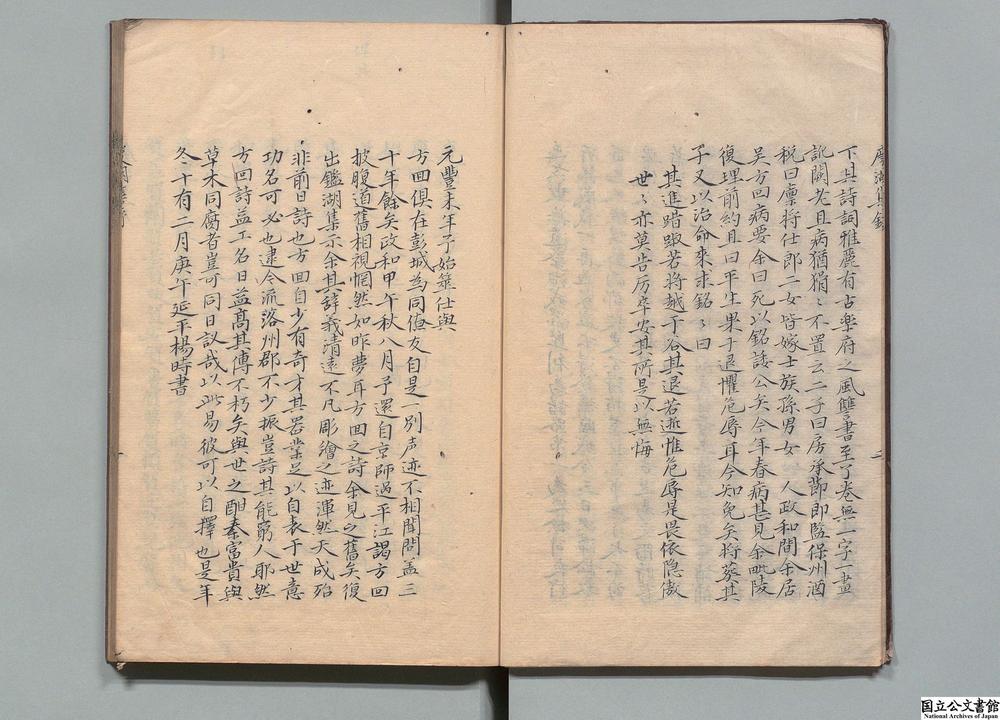 下其詩詞雅麗有古楽府之風讐書至了卷無一字一畫
訛闕老且病猶狷〻不置云二子曰房承節郎監保州酒
税曰廪将仕郎一女皆嫁士族孫男女 人政和間余居
吴方回病要余曰死以銘諉公矣今年春病甚見余毗陵
復理前約且曰平生果于退懼危辱耳今知免矣将葬其
子又以治命來求銘〻曰
其進踖踧若将越于谷其退若逝惟危辱是畏依隐傲
世〻亦莫告厉卒安其所是以無悔
元豐末年予始筮仕與
方回俱在彭城為同僚友自是一别声迹不相聞問盖三
十年餘矣政和甲午秋八月予還自京師過平江謁方回
披腹道舊相視惘然如昨夢耳方回之詩余見之舊矣復
出鑑湖集示余其辞義清遠不凡彫繪之迹渾然天成殆
非前日詩也方回自少有奇才其器業足以自表于世意
功名可必也逮今流落州郡不少振豈詩其能窮人耶然
方回詩益工名日益髙其傳不朽矣與世之酣豢富貴與
草木同腐者豈可同日議哉以此易彼可以自擇也是年
冬十有二月庚午延平楊時書
国立公文書館
National Archives of Japan